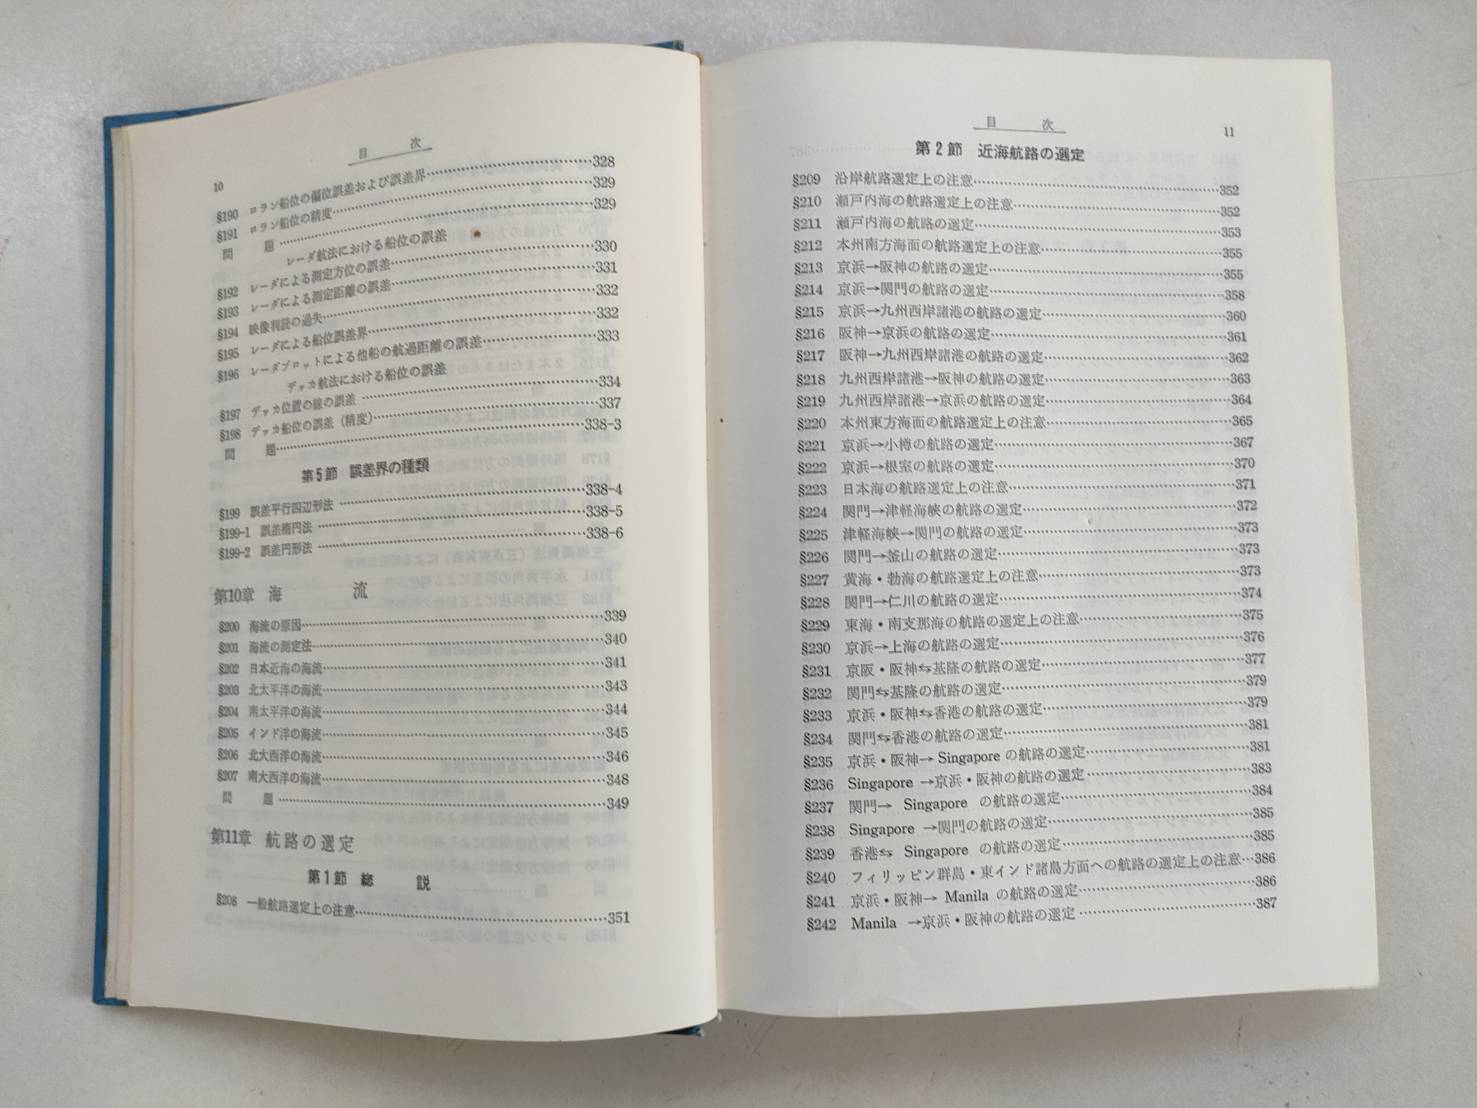 目　次
10
§190 ロラン船位の偏位誤差および誤差界……328
§191 ロラン船位の精度……329
問　題……329
レーダ航法における船位の誤差
§192 レーダによる測定方位の誤差……330
§193 レーダによる測定距離の誤差……331
§194 映像判読の過失……332
§195 レーダによる船位誤差界……332
§196 レーダプロットによる他船の航過距離の誤差……333
デッカ航法における船位の誤差
§197 デッカ位置の線の誤差……334
§198 デッカ船位の誤差（精度）……337
問　題……338-3
第5節 誤差界の種類
§199 誤差平行四辺形法……338-4
§199-1 誤差楕円法……338-5
§199-2 誤差円形法……338-6
第10章 海　流
§200 海流の原因……339
§201 海流の測定法……340
§202 日本近海の海流……341
§203 北太平洋の海流……343
§204 南太平洋の海流……344
§205 インド洋の海流……345
§206 北大西洋の海流……346
§207 南大西洋の海流……348
問　題……349
第11章 航路の選定
第1節 総　説
§208 一般航路選定上の注意……351
目　次
11
第2節 近海航路の選定
§209 沿岸航路選定上の注意……352
§210 瀬戸内海の航路選定上の注意……352
§211 瀬戸内海の航路の選定……353
§212 本州南方海面の航路選定上の注意……355
§213 京浜→阪神の航路の選定……355
§214 京浜→関門の航路の選定……358
§215 京浜→九州西岸諸港の航路の選定……360
§216 阪神→京浜の航路の選定……361
§217 阪神→九州西岸諸港の航路の選定……362
§218 九州西岸諸港→阪神の航路の選定……363
§219 九州西岸諸港→京浜の航路の選定……364
§220 本州東方海面の航路選定上の注意……365
§221 京浜→小樽の航路の選定……367
§222 京浜→根室の航路の選定……370
§223 日本海の航路選定上の注意……371
§224 関門→津軽海峡の航路の選定……372
§225 津軽海峡→関門の航路の選定……373
§226 関門→釜山の航路の選定……373
§227 黄海・勃海の航路選定上の注意……373
§228 関門→仁川の航路の選定……374
§229 東海・南支那海の航路の選定上の注意……375
§230 京浜→上海の航路の選定……376
§231 京阪・阪神⇆基隆の航路の選定……377
§232 関門⇆基隆の航路の選定……379
§233 京浜・阪神⇆香港の航路の選定……379
§234 関門⇆香港の航路の選定……381
§235 京浜・阪神→ Singapore の航路の選定……381
§236 Singapore →京浜・阪神の航路の選定……383
§237 関門→ Singapore の航路の選定……384
§238 Singapore →関門の航路の選定……385
§239 香港⇆ Singapore の航路の選定……385
§240 フィリッピン群島・東インド諸島方面への航路の選定上の注意…386
§241 京浜・阪神→ Manila の航路の選定……386
§242 Manila →京浜・阪神の航路の選定……387